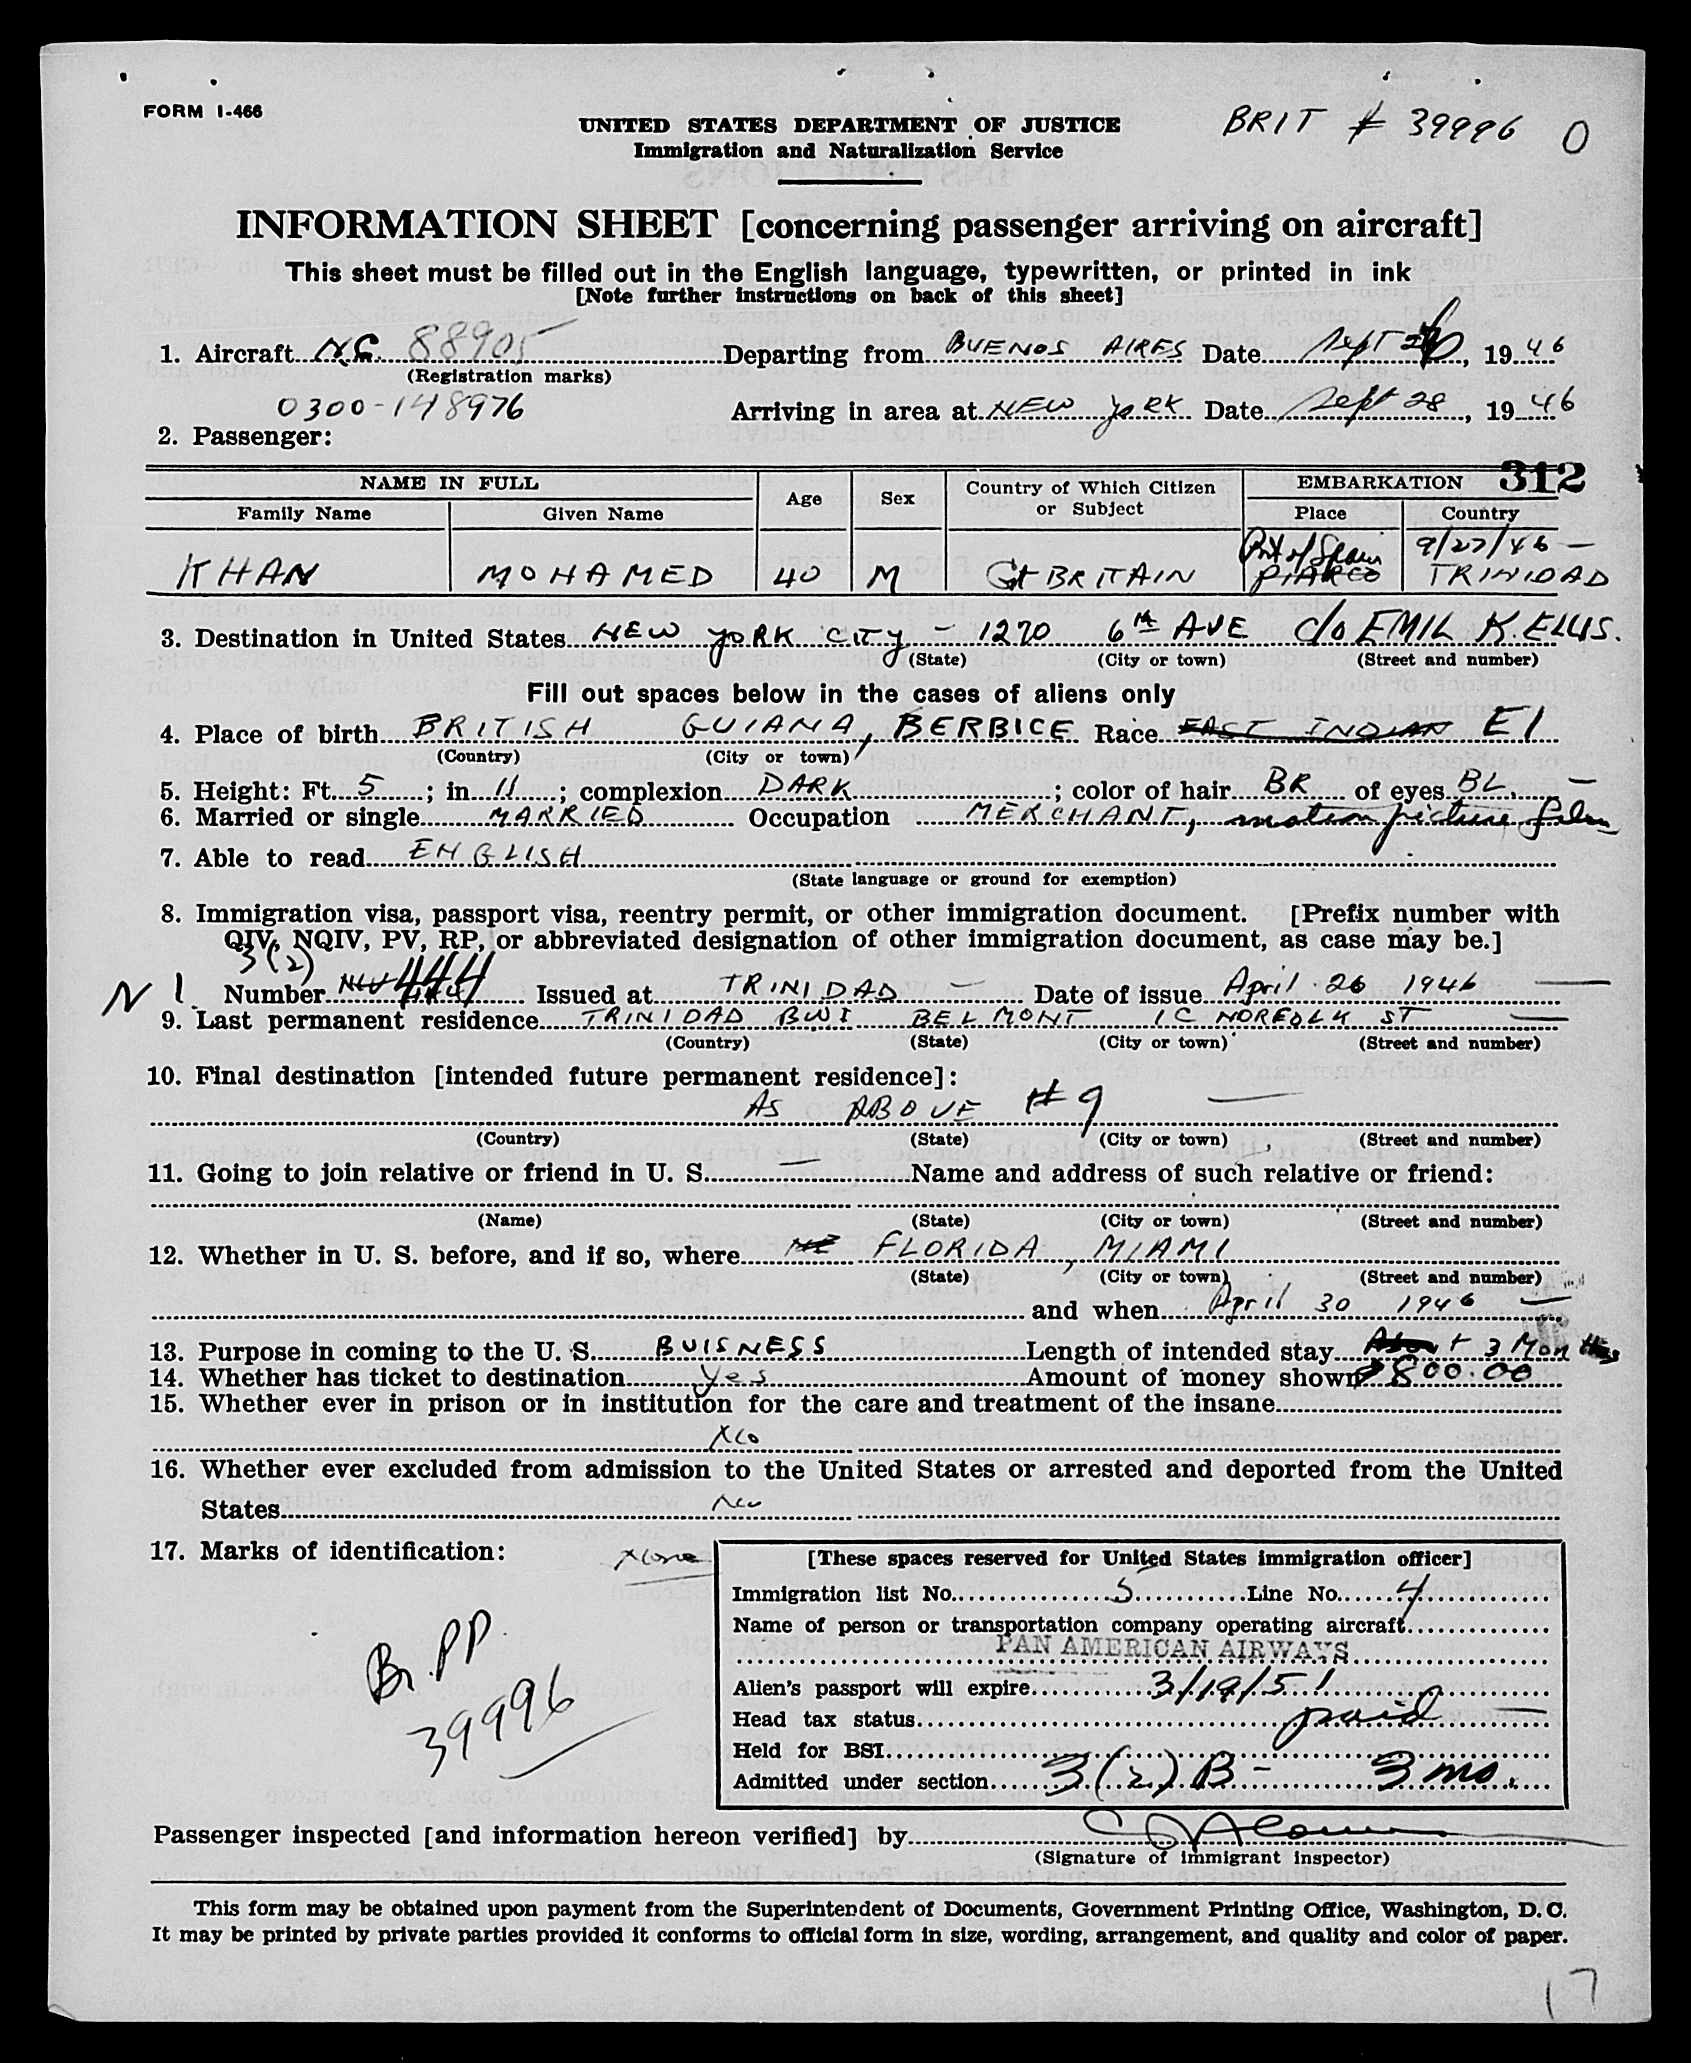 FORM I-466
BRIT # 39996 O
UNITED STATES DEPARTMENT OF JUSTICE
Immigration and Naturalization Service
INFORMATION SHEET [concerning passenger arriving on aircraft]
This sheet must be filled out in the English language, typewritten, or printed in ink
[Note further instructions on back of this sheet]
1. Aircraft NC 88905 Departing from BUENOS AIRES Date Sept 26, 1946
(Registration marks)
0300-148976 Arriving in area at NEW YORK Date Sept 28, 1946
2. Passenger:
312
NAME IN FULL Age Sex Country of Which Citizen or Subject EMBARKATION
Family Name Given Name Place Country
Port of Spain 9/27/46 —
KHAN MOHAMED 40 M Gt BRITAIN PIARCO TRINIDAD
3. Destination in United States NEW YORK CITY - 1270 6th AVE C/o EMIL K. ELLIS.
(State) (City or town) (Street and number)
Fill out spaces below in the cases of aliens only
4. Place of birth BRITISH GUIANA, BERBICE Race EAST INDIAN EI
(Country) (City or town)
5. Height: Ft. 5; in. 11; complexion DARK; color of hair BR of eyes BL. —
6. Married or single MARRIED Occupation MERCHANT, motion picture film
7. Able to read ENGLISH
(State language or ground for exemption)
8. Immigration visa, passport visa, reentry permit, or other immigration document. [Prefix number with
QIV, NQIV, PV, RP, or abbreviated designation of other immigration document, as case may be.]
3(2)
N 1. Number 444 Issued at TRINIDAD — Date of issue April 26 1946 —
9. Last permanent residence TRINIDAD BWI BELMONT 1C NORFOLK ST —
(Country) (State) (City or town) (Street and number)
10. Final destination [intended future permanent residence]:
AS ABOVE #9 —
(Country) (State) (City or town) (Street and number)
11. Going to join relative or friend in U. S. — Name and address of such relative or friend:
(Name) (State) (City or town) (Street and number)
12. Whether in U. S. before, and if so, where FLORIDA, MIAMI
(State) (City or town) (Street and number)
and when April 30 1946 —
13. Purpose in coming to the U. S. BUISNESS Length of intended stay 3 Months
14. Whether has ticket to destination Yes Amount of money shown $800.00
15. Whether ever in prison or in institution for the care and treatment of the insane
No
16. Whether ever excluded from admission to the United States or arrested and deported from the United
States No
17. Marks of identification: None
Br. PP.
39996
[These spaces reserved for United States immigration officer]
Immigration list No. 5 Line No. 4
Name of person or transportation company operating aircraft
PAN AMERICAN AIRWAYS
Alien's passport will expire 3/19/51
Head tax status paid —
Held for BSI
Admitted under section 3(2)B - 3 mo.
Passenger inspected [and information hereon verified] by
(Signature of immigrant inspector)
This form may be obtained upon payment from the Superintendent of Documents, Government Printing Office, Washington, D. C.
It may be printed by private parties provided it conforms to official form in size, wording, arrangement, and quality and color of paper.
17